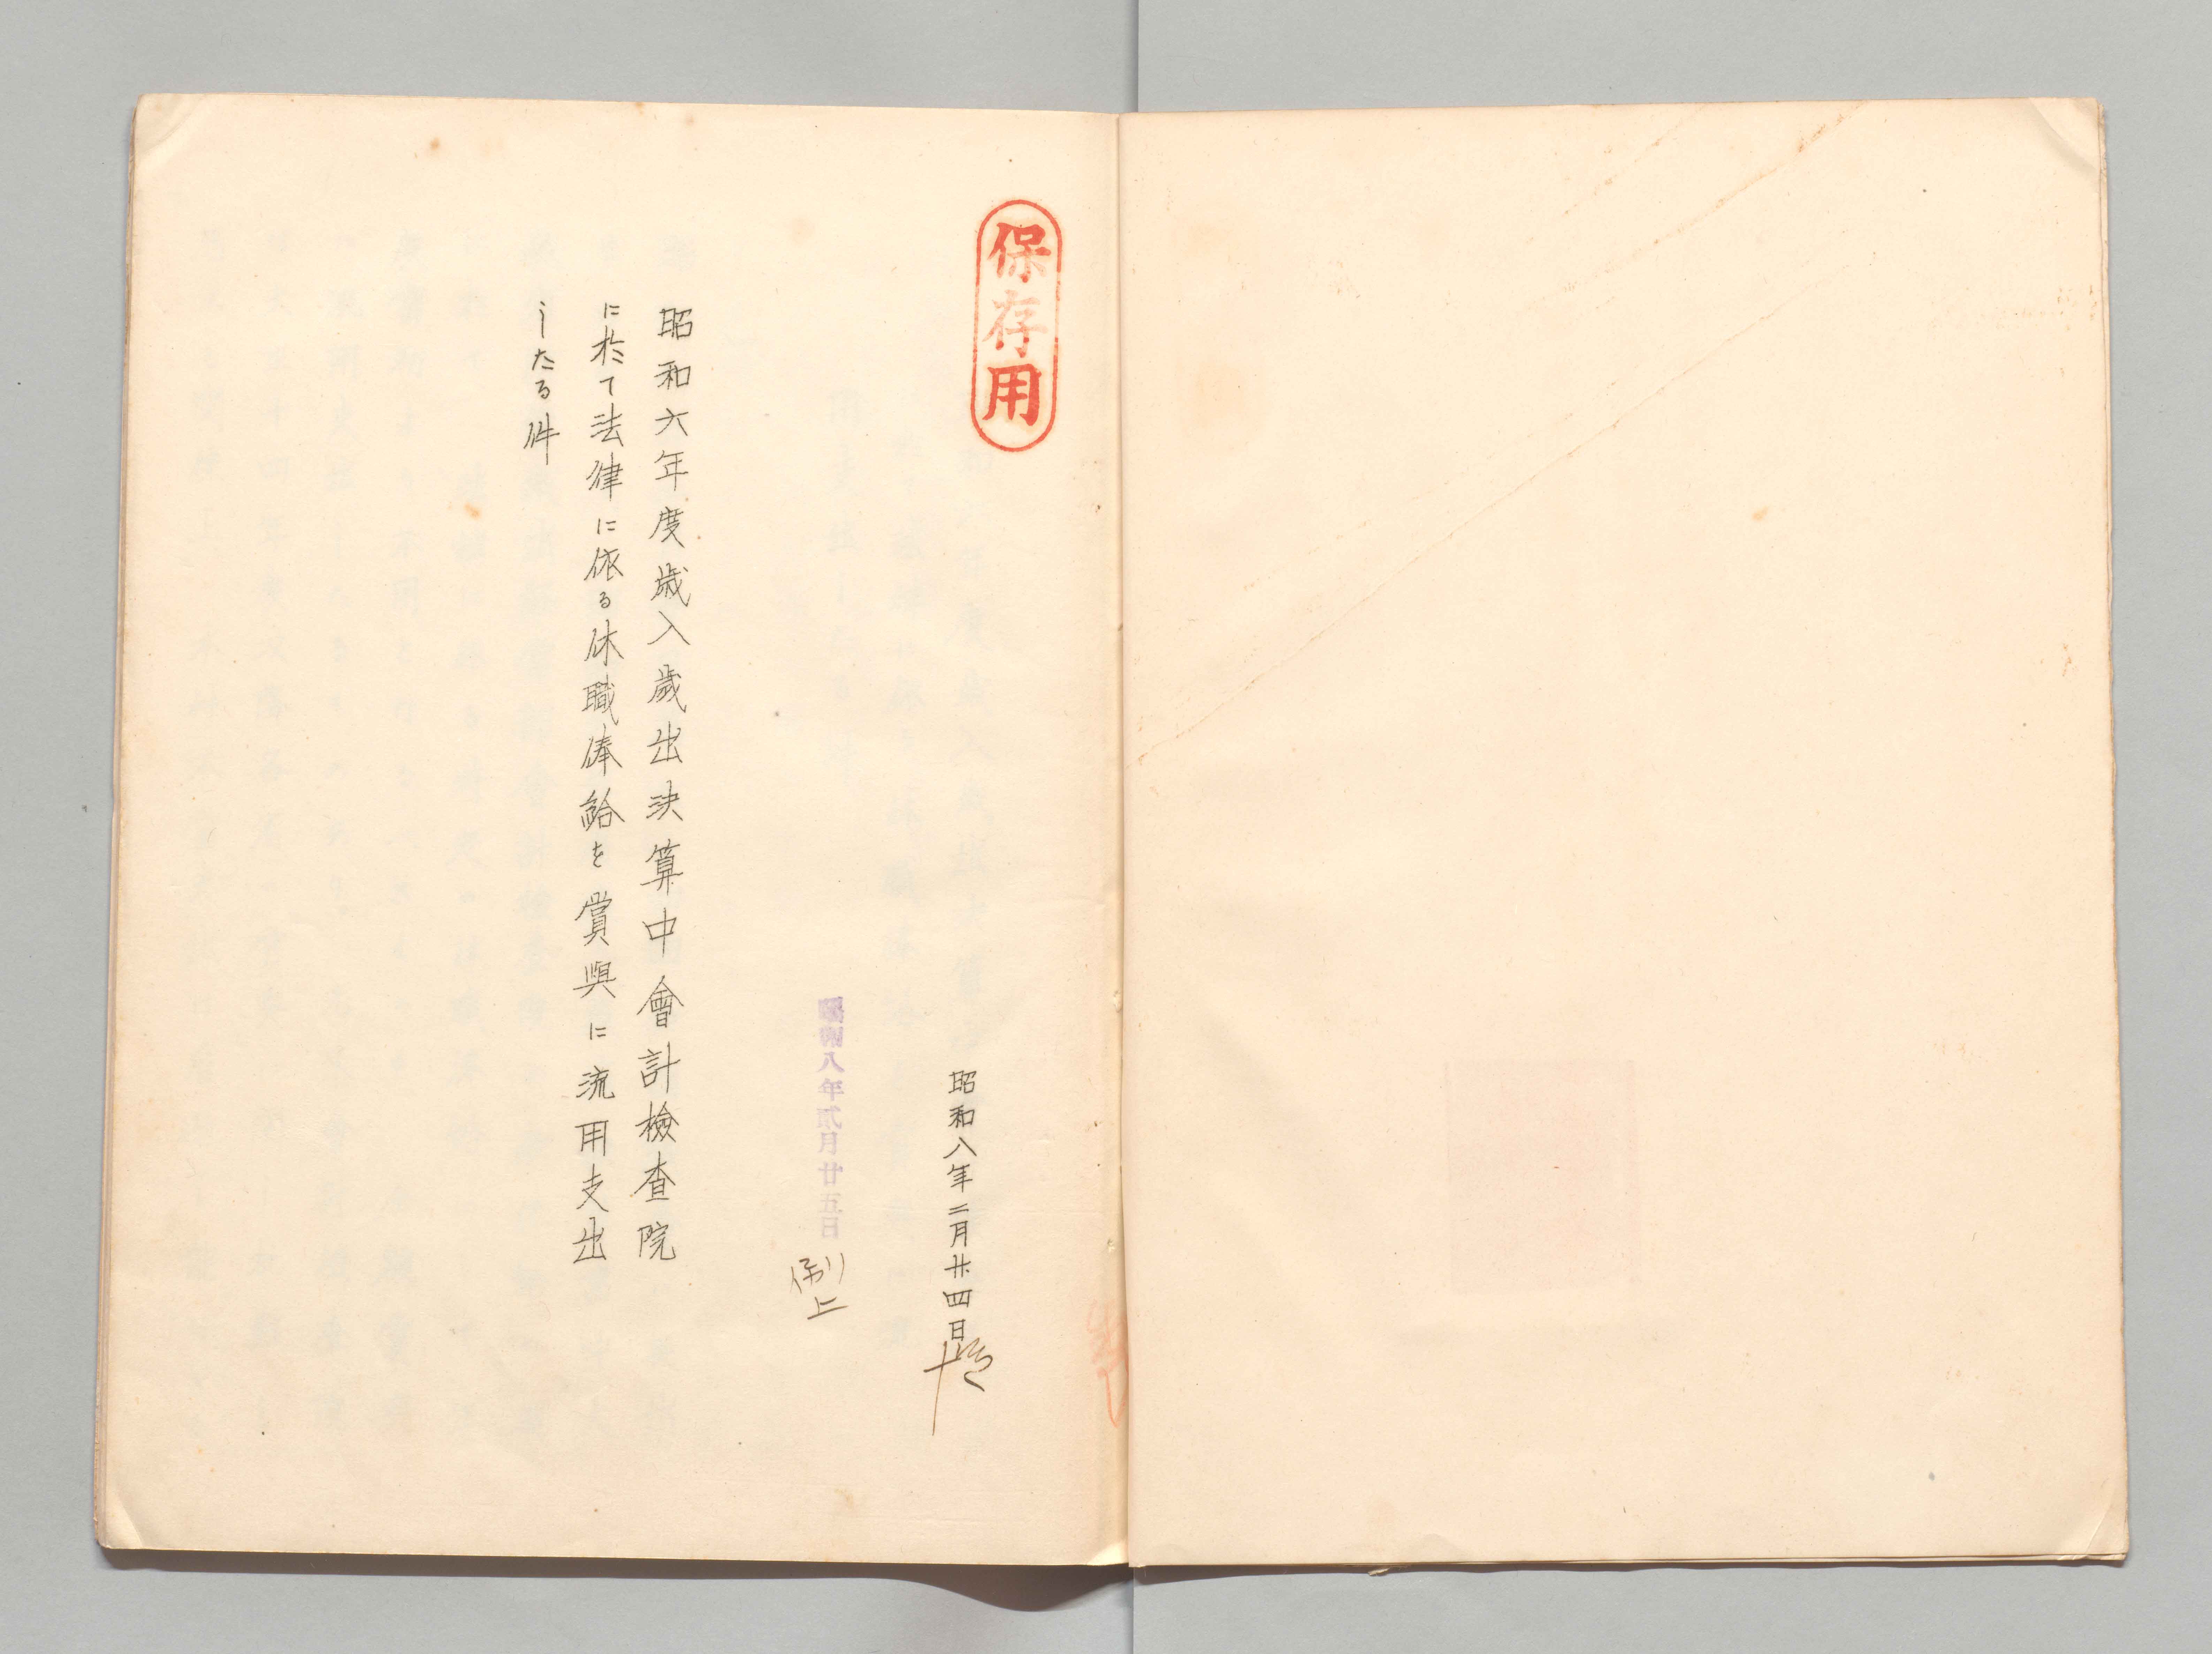 保存用
昭和八年二月廿四日
昭和八年貳月廿五日
昭和六年度歳入歳出決算中會計檢査院
に於て法律に依る休職俸給を賞與に流用支出
したる件